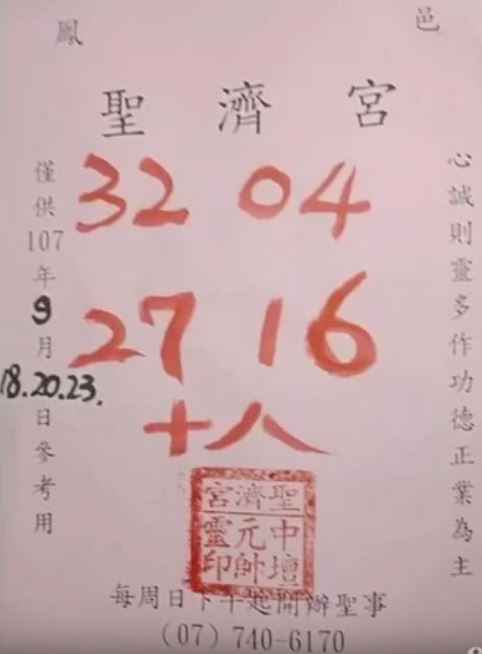 鳳邑
聖濟宮
心誠則靈多作功德正業為主
32 04
27 16
十八
僅供107年9月18.20.23.日參考用
聖濟宮
中壇元帥靈印
每周日下午起開辦聖事
(07) 740-6170